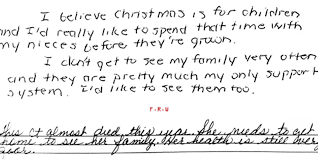 I believe Christmas is for children
and I'd really like to spend that time with
my nieces before they're grown.
I don't get to see my family very often
and they are pretty much my only support
system. I'd like to see them too.
F-R-W
This ct almost died this year. She needs to get
home to see her family. Her health is still over